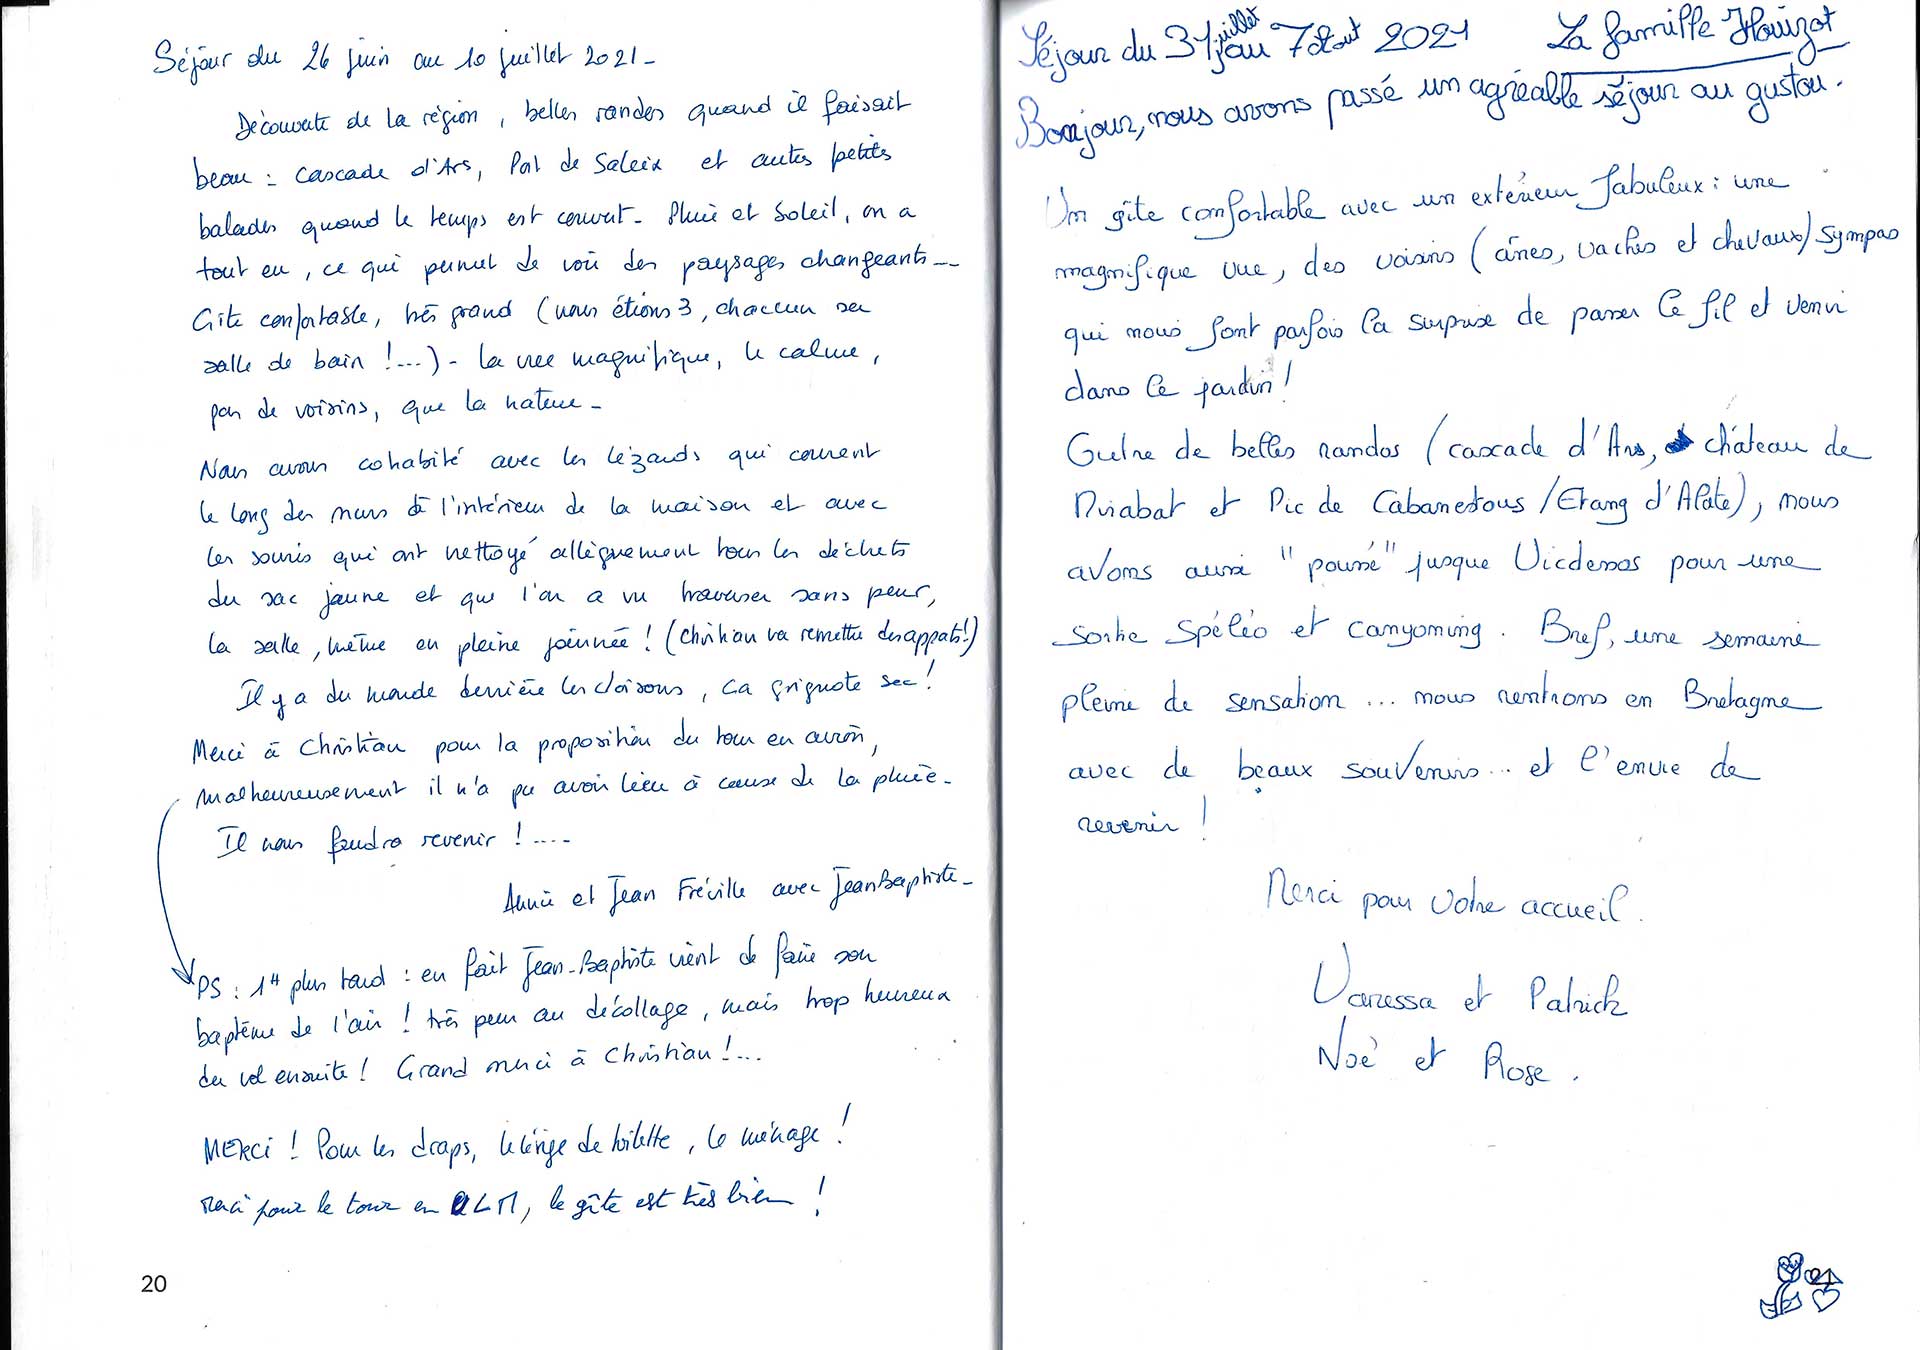 Séjour du 26 juin au 10 juillet 2021 -
Découverte de la région, belles randos quand il faisait
beau : cascade d'Ars, Port de Saleix et autres petites
balades quand le temps est couvert - Pluie et soleil, on a
tout eu, ce qui permet de voir des paysages changeants --
Gîte confortable, très grand (nous étions 3, chacun sa
salle de bain !...) - la vue magnifique, le calme,
pas de voisins, que la nature -
Nous avons cohabité avec les lézards qui courent
le long des murs à l'intérieur de la maison et avec
les souris qui ont nettoyé allègrement tous les déchets
du sac jaune et que l'on a vu traverser sans peur,
la salle, même en pleine journée ! (Christian va remettre des appats !)
Il y a du monde derrière les cloisons, ça grignote sec !
Merci à Christian pour la proposition du tour en avion,
malheureusement il n'a pu avoir lieu à cause de la pluie -
Il nous faudra revenir ! ....
Annie et Jean Fréville avec Jean Baptiste -
PS : 1H plus tard : en fait Jean-Baptiste vient de faire son
baptême de l'air ! très peur au décollage, mais trop heureux
du vol ensuite ! Grand merci à Christian ! ...
MERCI ! Pour les draps, le linge de toilette, le ménage !
Merci pour le tour en ULM, le gîte est très bien !
20
Séjour du 31 juillet au 7 Aout 2021 La famille Houizot
Bonjour, nous avons passé un agréable séjour au gustou.
Un gîte confortable avec un extérieur fabuleux : une
magnifique vue, des voisins (ânes, vaches et chevaux) sympas
qui nous font parfois la surprise de passer le fil et venir
dans le jardin !
Outre de belles randos (cascade d'Ars, château de
Miabat et Pic de Cabanatous / Etang d'Alate), nous
avons aussi "poussé" jusque Vicdessos pour une
sortie spéléo et canyoning. Bref, une semaine
pleine de sensation ... nous rentrons en Bretagne
avec de beaux souvenirs ... et l'envie de
revenir !
Merci pour votre accueil.
Vanessa et Patrick
Noé et Rose.
21